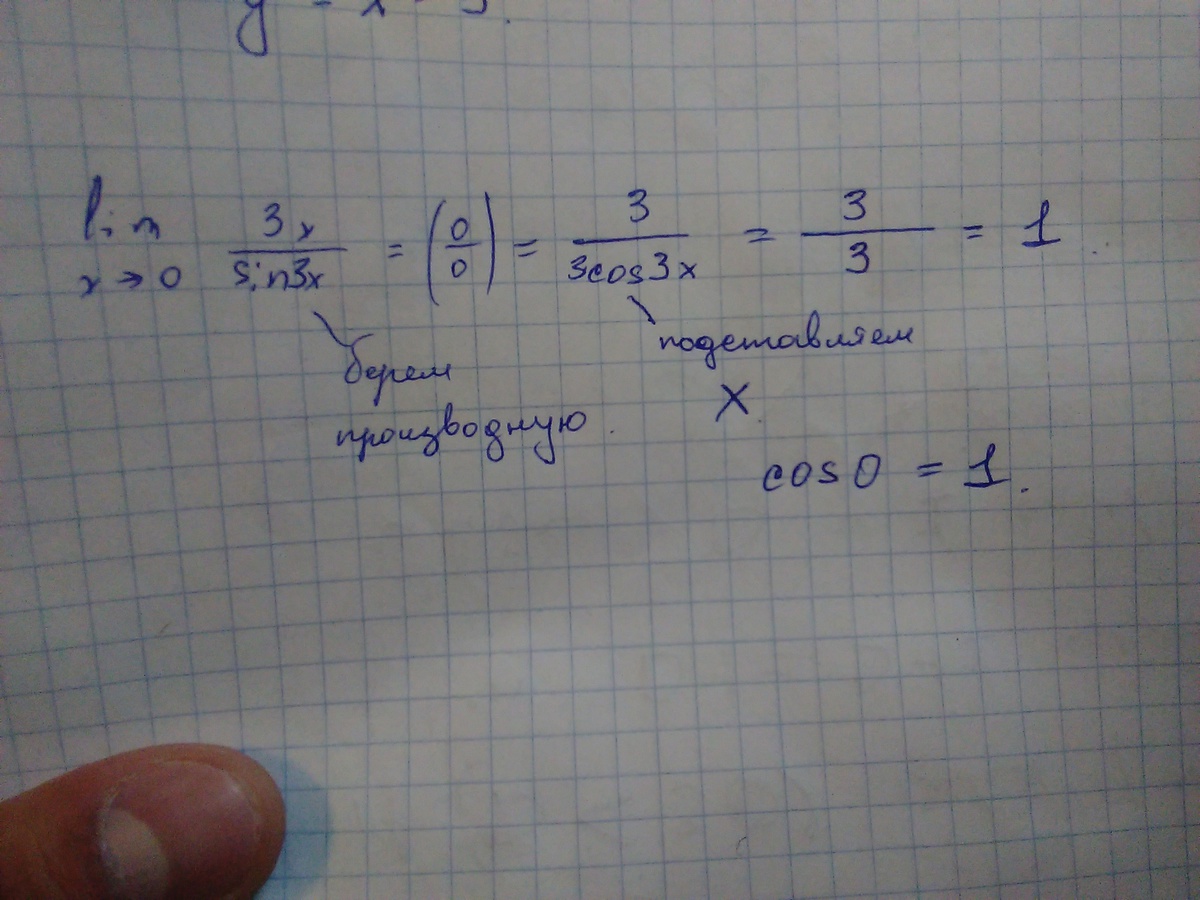 lim 3x / sin3x = (0/0) = 3 / 3cos3x = 3 / 3 = 1.
x→0
берем
производную.
подставляем
x.
cos0 = 1.